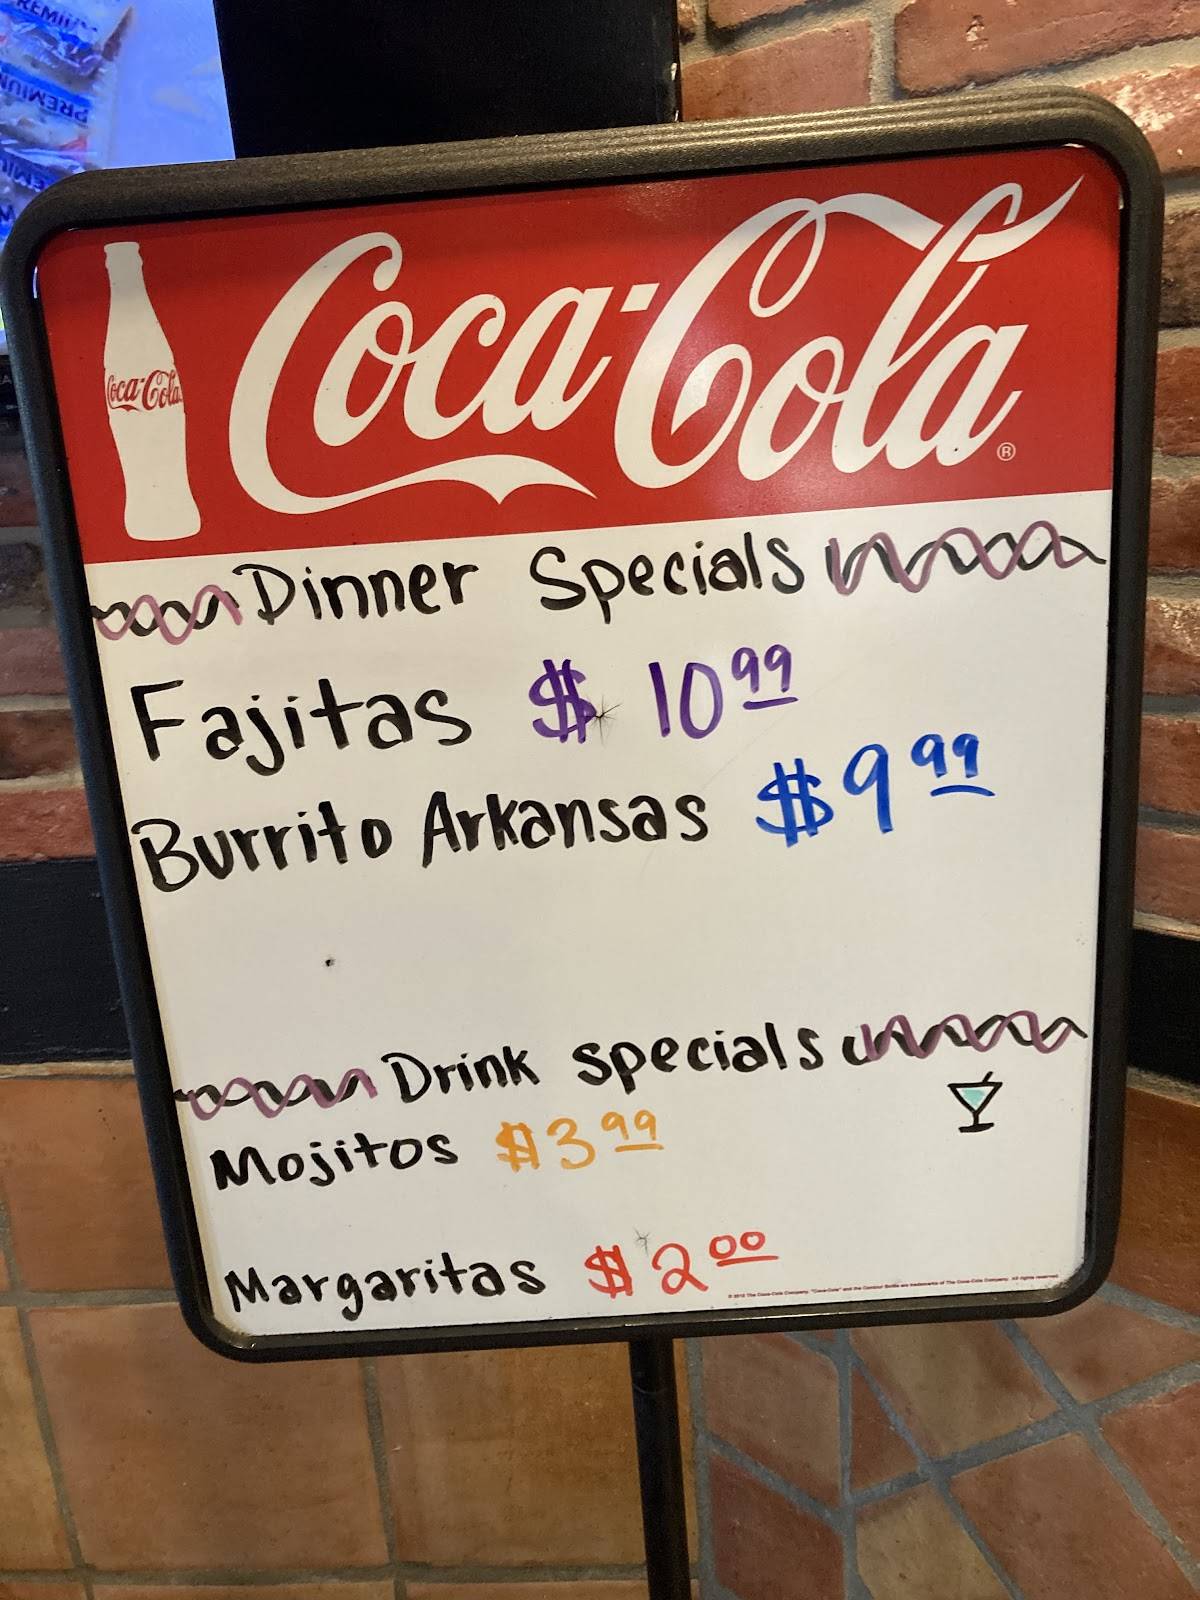 PREMIUM
PREMIUM
Coca-Cola
Coca-Cola ®
Dinner Specials
Fajitas $ 10 99
Burrito Arkansas $9 99
Drink specials
Mojitos $3 99
Margaritas $2 00